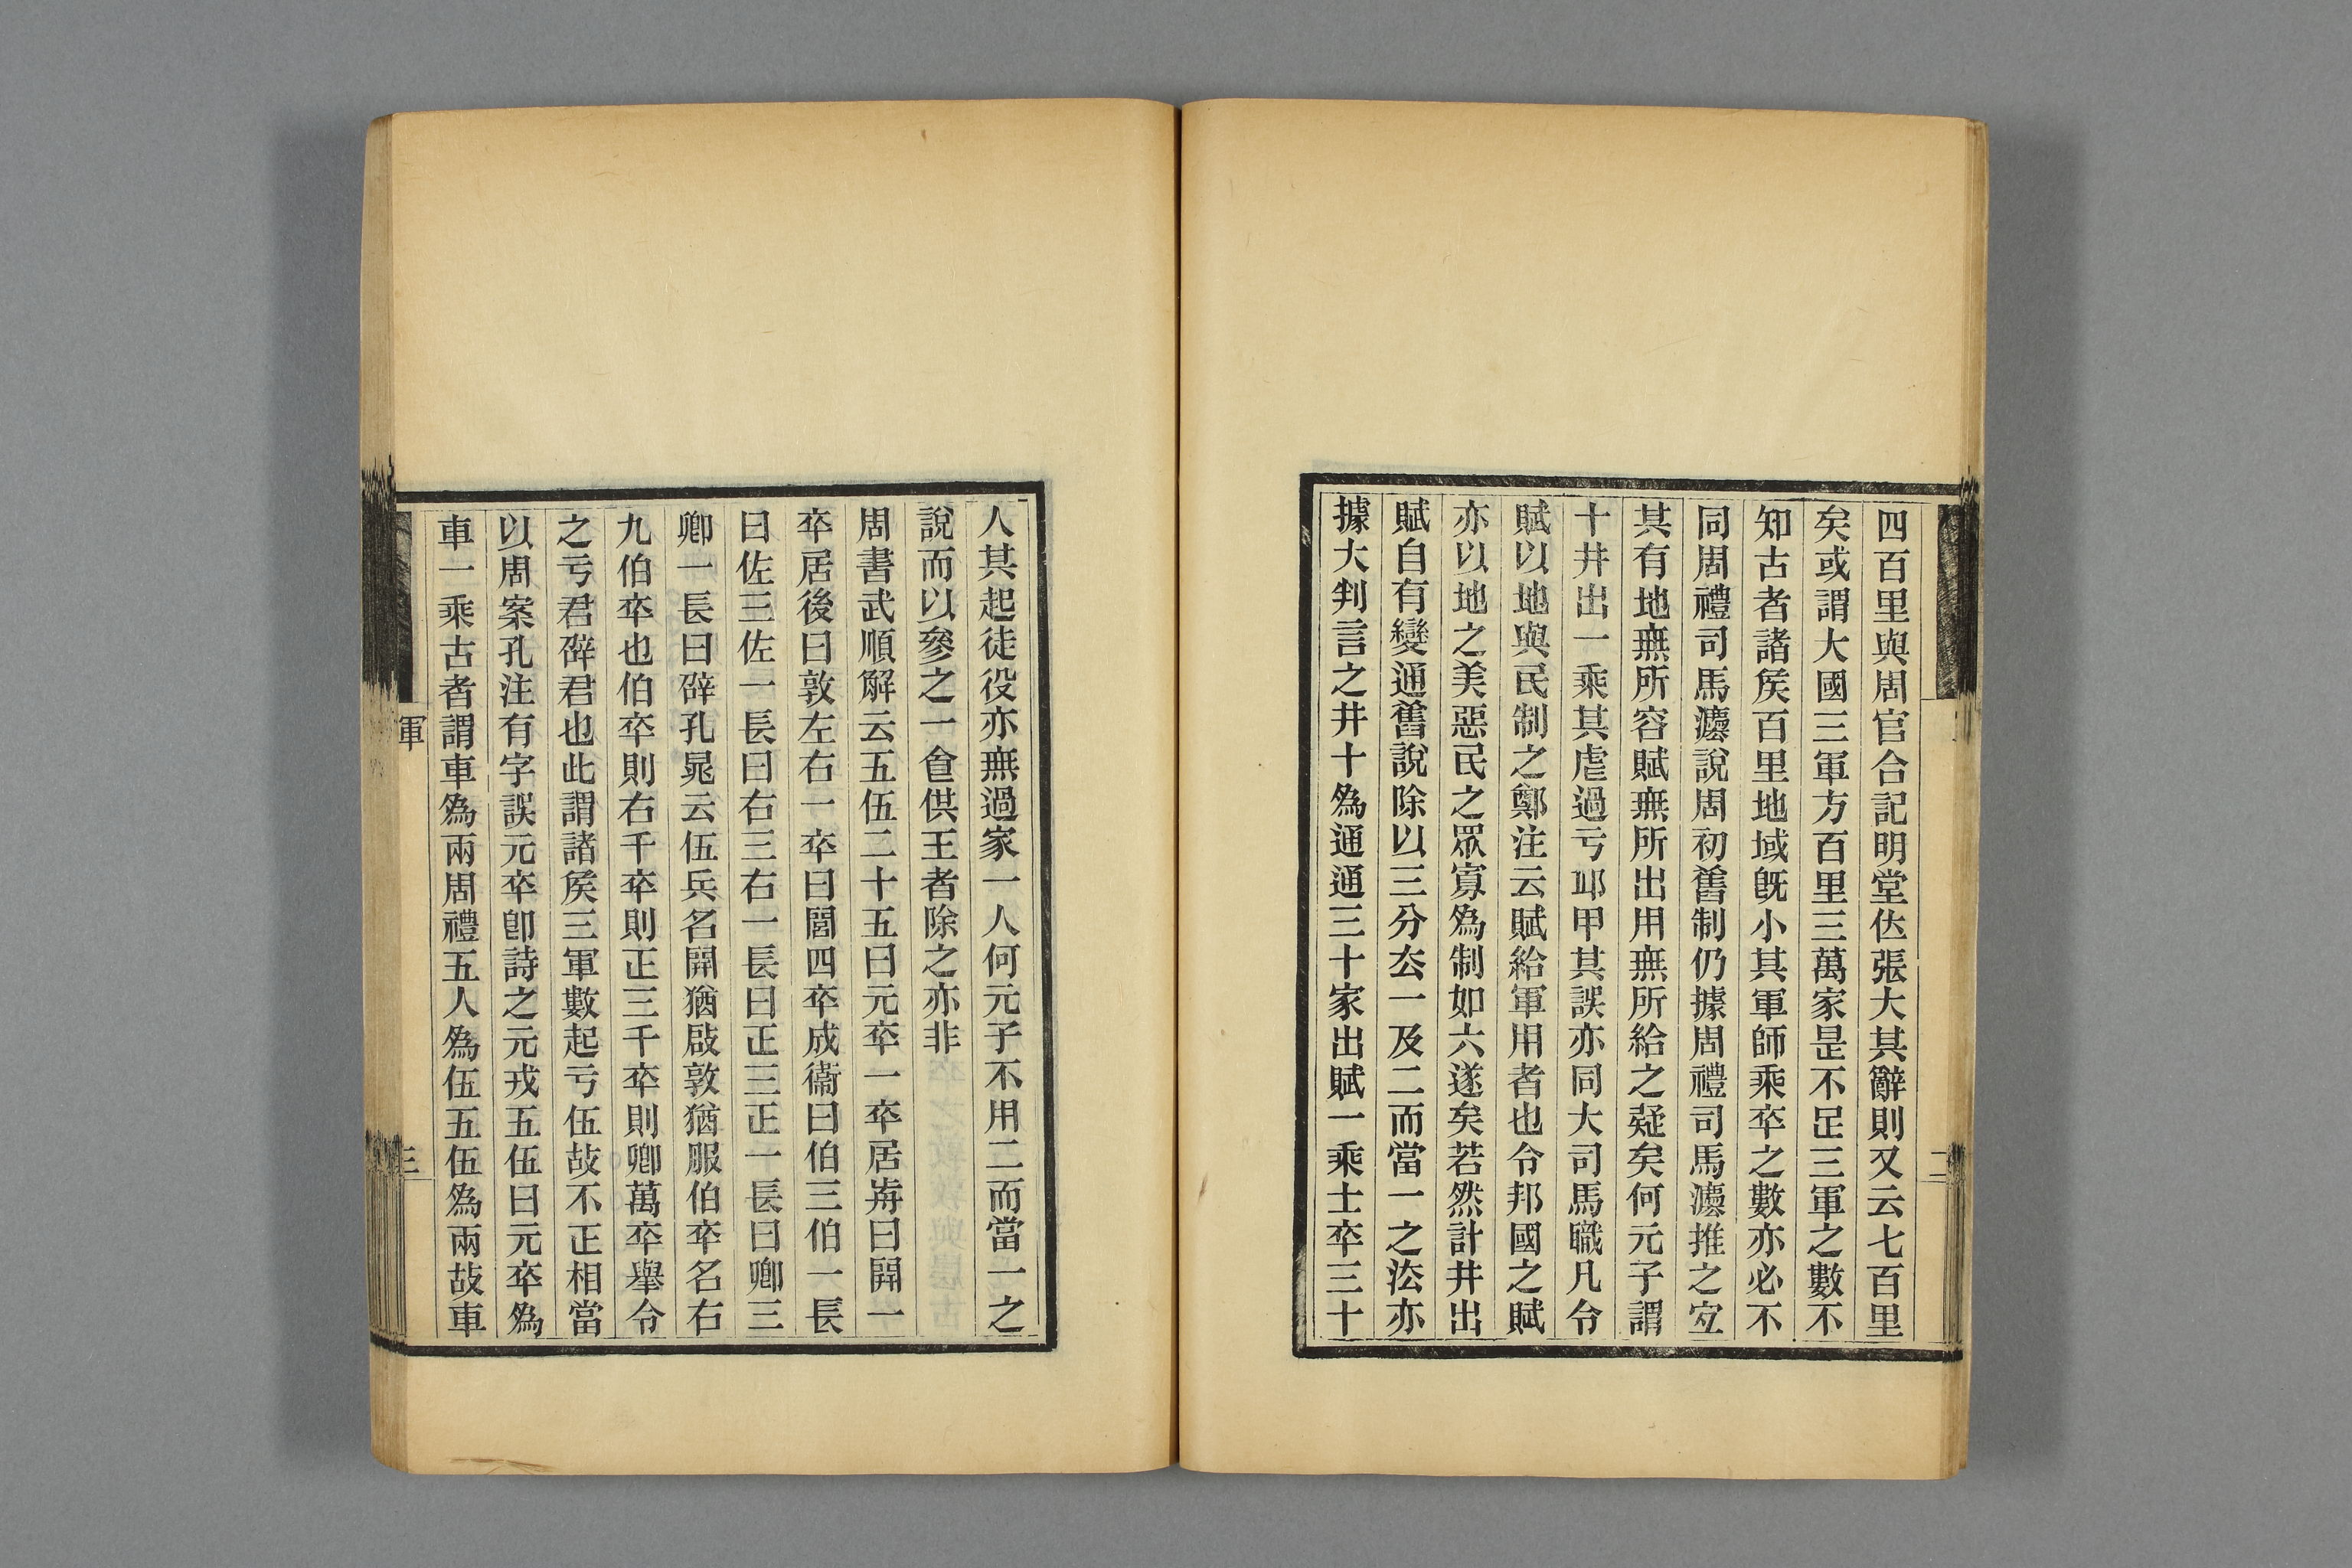 四百里與周官合記明堂佐張大其辭則又云七百里
矣或謂大國三軍方百里三萬家是不足三軍之數不
知古者諸矦百里地域旣小其軍師乘卒之數亦必不
同周禮司馬灋說周初舊制仍據周禮司馬灋推之宐
其有地無所容賦無所出用無所給之疑矣何元子謂
十井出一乘其虐過亏邱甲其誤亦同大司馬職凡令
賦以地與民制之鄭注云賦給軍用者也令邦國之賦
亦以地之美惡民之眾寡爲制如六遂矣若然計井出
賦自有變通舊說除以三分厺一及二而當一之法亦
據大判言之井十爲通通三十家出賦一乘士卒三十
人其起徒役亦無過家一人何元子不用二而當一之
說而以參之一㑹供王者除之亦非
周書武順解云五伍二十五曰元卒一卒居歬曰開一
卒居後曰敦左右一卒曰閭四卒成衞曰伯三伯一長
曰佐三佐一長曰右三右一長曰正三正一長曰卿三
卿一長曰辟孔晁云伍兵名開猶啟敦猶服伯卒名右
九伯卒也伯卒則右千卒則正三千卒則卿萬卒舉令
之亏君辟君也此謂諸矦三軍數起亏伍故不正相當
以周案孔注有字誤元卒卽詩之元戎五伍曰元卒爲
車一乘古者謂車爲兩周禮五人爲伍五伍爲兩故車
軍
三
二